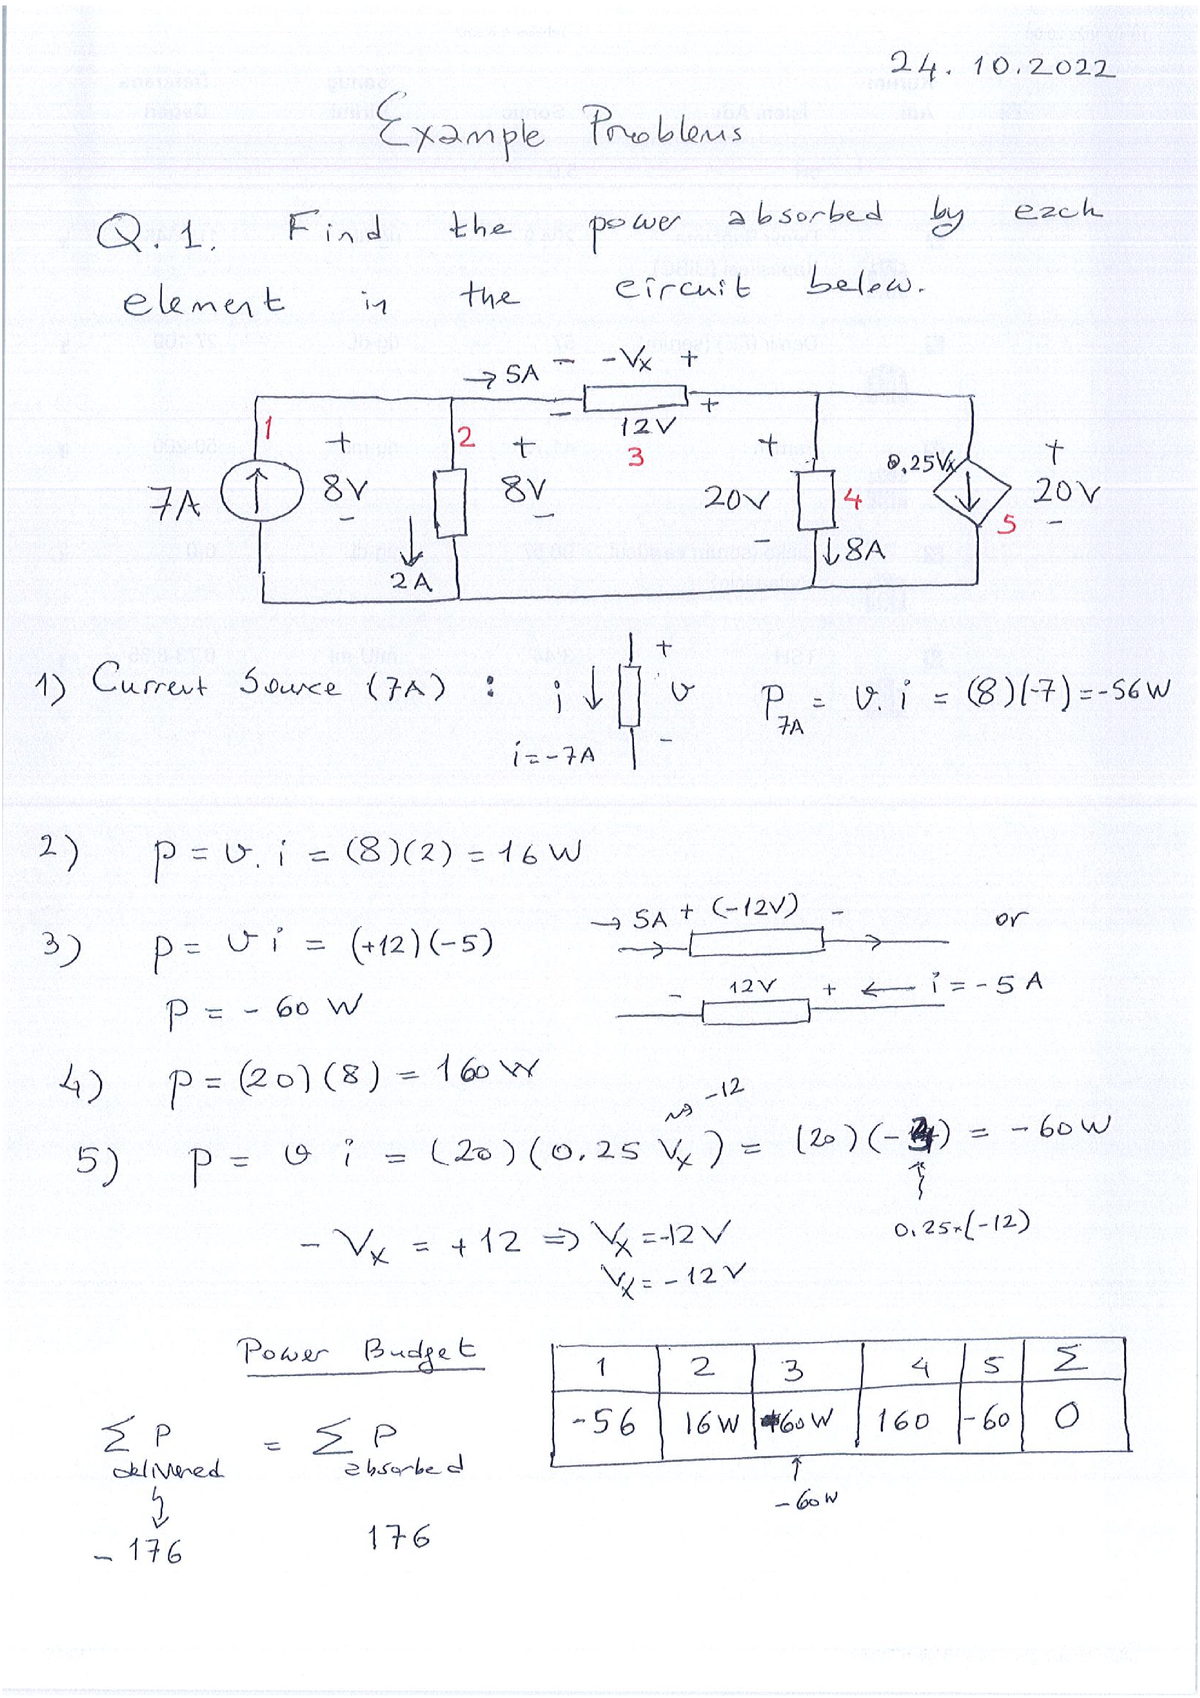 24.10.2022
Example Problems
Q.1. Find the power absorbed by each
element in the circuit below.
→ 5A - -Vx +
- +
1 + 2 + 12V + 0,25Vx +
3
7A 8V 8V 20V 4 20V
- - - 5 -
2A ↓8A
1) Current Source (7A) : i ↓ + v - P7A = v.i = (8)(-7) = -56W
i = -7A
2) p = v.i = (8)(2) = 16W
→ 5A + (-12V) - or
3) p = v i = (+12)(-5)
- 12V + ← i = -5 A
p = - 60 W
4) p = (20)(8) = 160W
-12
5) p = v i = (20)(0.25 Vx) = (20)(-3) = -60W
0,25×(-12)
- Vx = +12 ⇒ Vx = -12V
Vx = -12V
Power Budget
1 2 3 4 5 Σ
-56 16W 60W 160 -60 0
Σ P delivered = Σ P absorbed
-60W
- 176 176